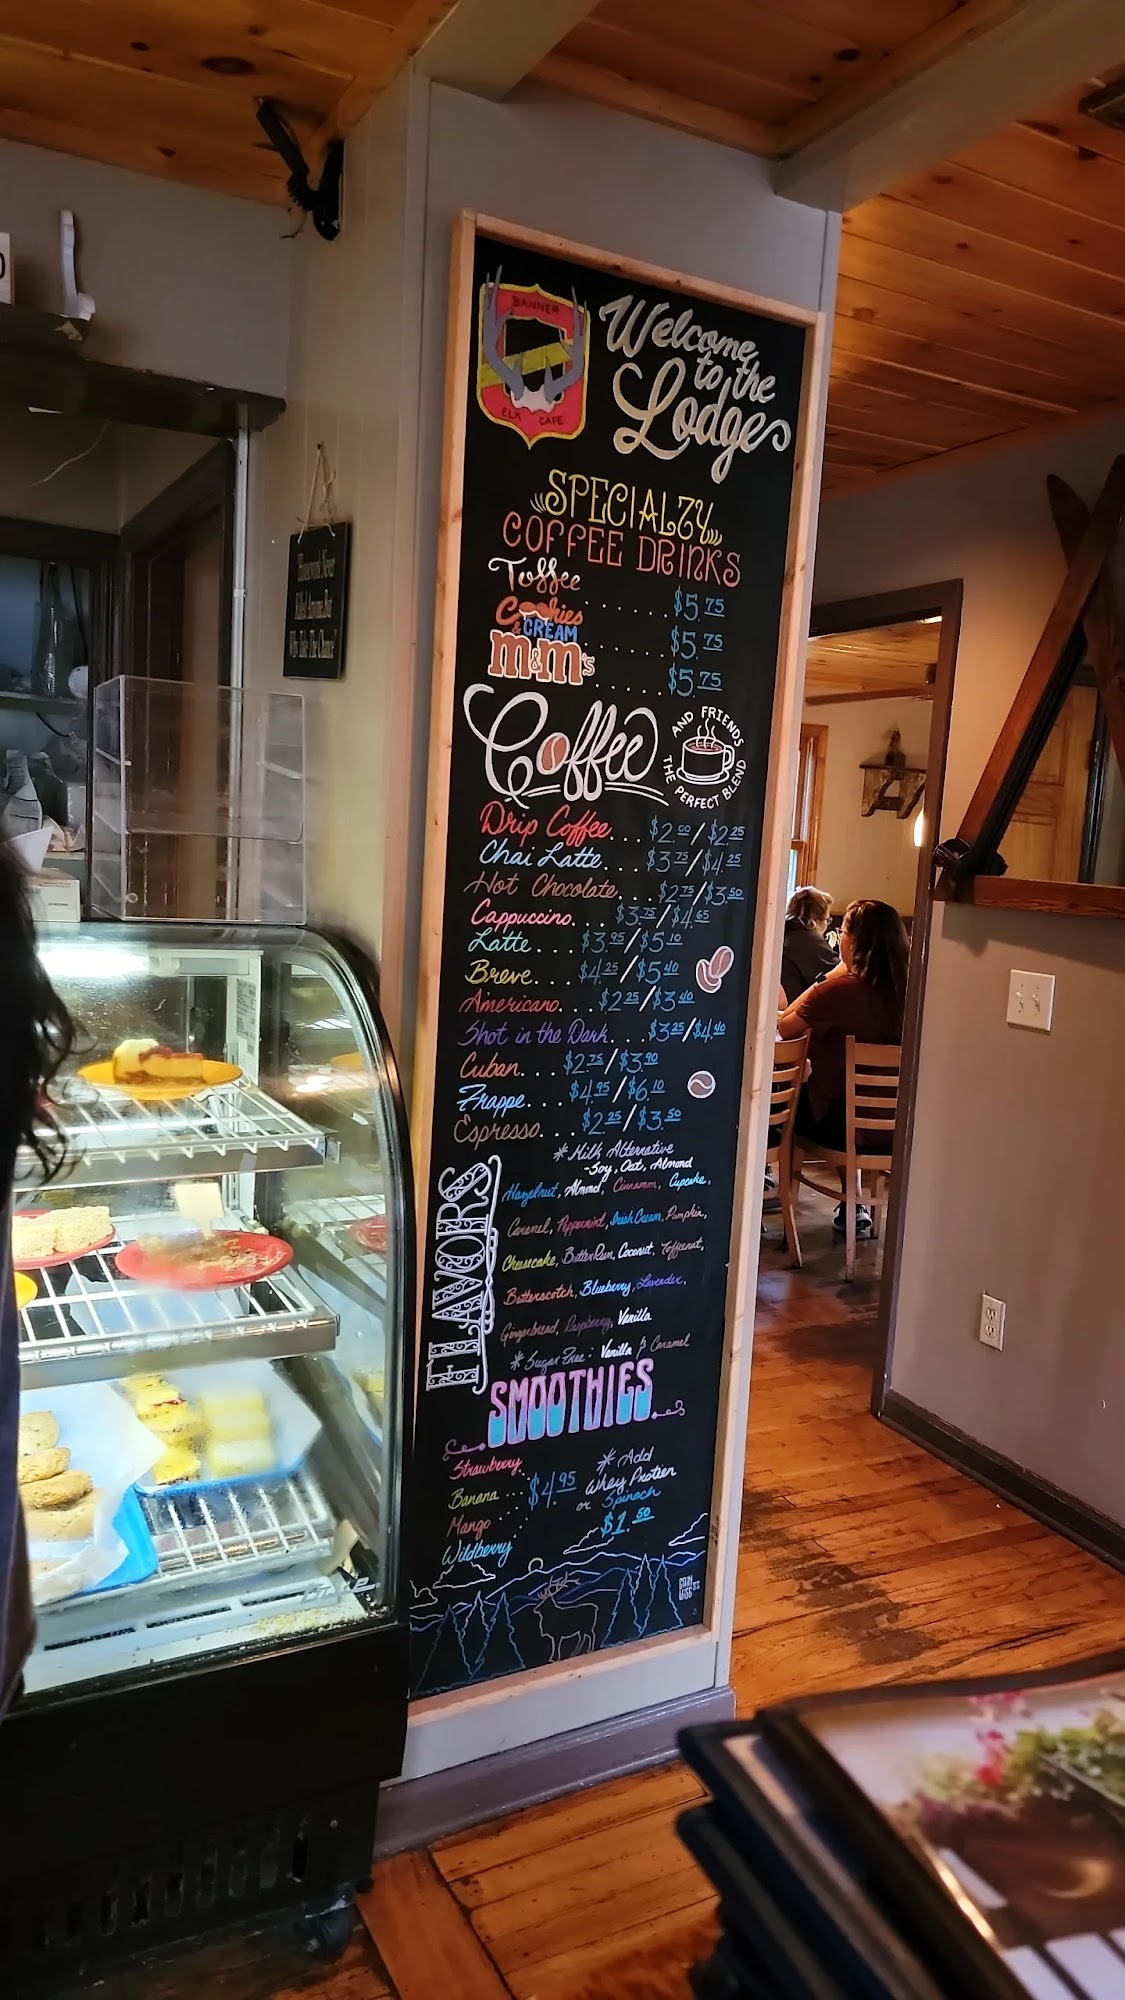 BANNER
ELK CAFE
Welcome
to the
Lodge
SPECIALTY
COFFEE DRINKS
Toffee ...... $5.75
Cookies
& CREAM ...... $5.75
m&m's ..... $5.75
Coffee
AND FRIENDS
THE PERFECT BLEND
Drip Coffee... $2.00/$2.25
Chai Latte... $3.75/$4.25
Hot Chocolate... $2.75/$3.50
Cappuccino... $3.75/$4.65
Latte... $3.95/$5.10
Breve... $4.25/$5.40
Americano... $2.25/$3.40
Shot in the Dark... $3.25/$4.40
Cuban... $2.75/$3.90
Frappe... $4.95/$6.10
Espresso... $2.25/$3.50
* Milk Alternative
- Soy, Oat, Almond
FLAVORS
Hazelnut, Almond, Cinnamon, Cupcake,
Caramel, Peppermint, Irish Cream, Pumpkin,
Cheesecake, Butter Rum, Coconut, Toffeenut,
Butterscotch, Blueberry, Lavender,
Gingerbread, Raspberry, Vanilla
* Sugar Free: Vanilla & Caramel
SMOOTHIES
Strawberry
Banana ... $4.95
Mango
Wildberry
* Add
Whey Protien
or Spinach
$1.50
Homework Never
Killed Anyone But
Why Take The Chance?